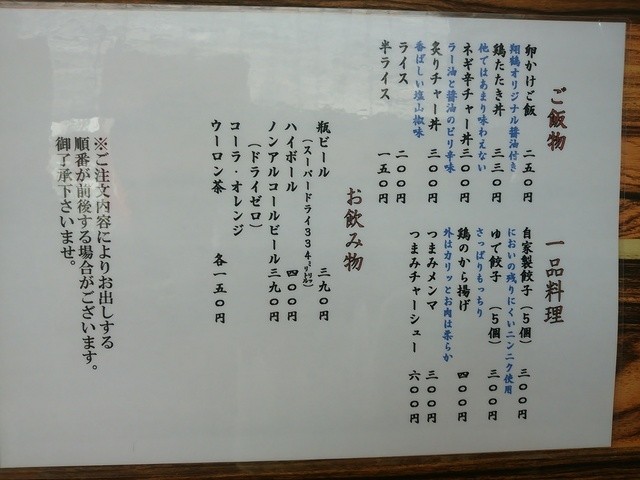 ご飯物
卵かけご飯 二五〇円
翔鶴オリジナル醤油付き
鶏たたき丼 三三〇円
他ではあまり味わえない
ネギ辛チャー丼 三〇〇円
ラー油と醤油のピリ辛味
炙りチャー丼 三〇〇円
香ばしい塩山椒味
ライス 二〇〇円
半ライス 一五〇円
一品料理
自家製餃子（５個） 三〇〇円
においの残りにくいニンニク使用
ゆで餃子（５個） 三〇〇円
さっぱりもっちり
鶏のから揚げ 四〇〇円
外はカリッとお肉は柔らか
つまみメンマ 三〇〇円
つまみチャーシュー 六〇〇円
お飲み物
瓶ビール 三九〇円
（スーパードライ３３４㍉㍑）
ハイボール 四〇〇円
ノンアルコールビール 三九〇円
（ドライゼロ）
コーラ・オレンジ
ウーロン茶 各一五〇円
※ご注文内容によりお出しする
順番が前後する場合がございます。
御了承下さいませ。